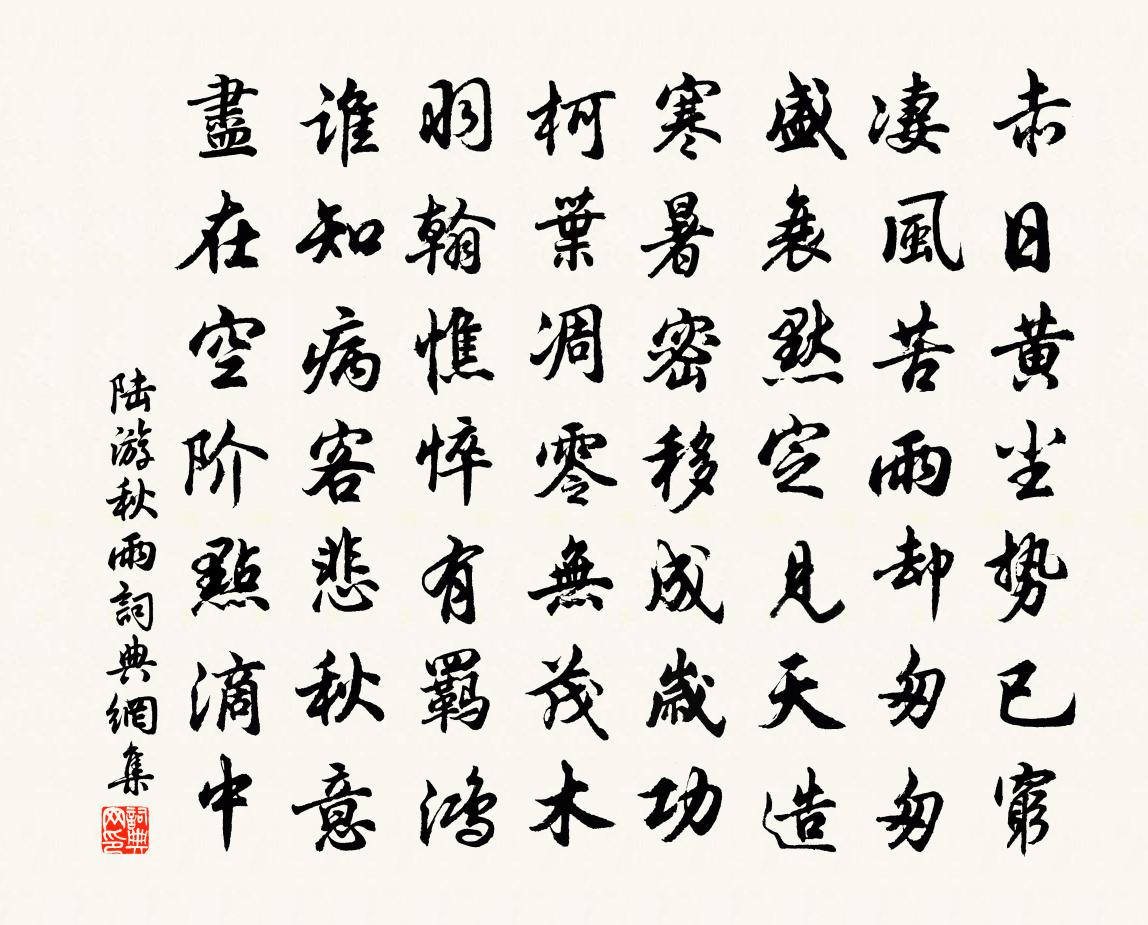 赤日黄尘势已窮
凄風苦雨却匆匆
盛衰默定見天造
寒暑密移成歲功
柯葉凋零無茂木
羽翰憔悴有羈鸿
誰知病客悲秋意
盡在空阶點滴中
陆游秋雨詞典網集
詞典
网印